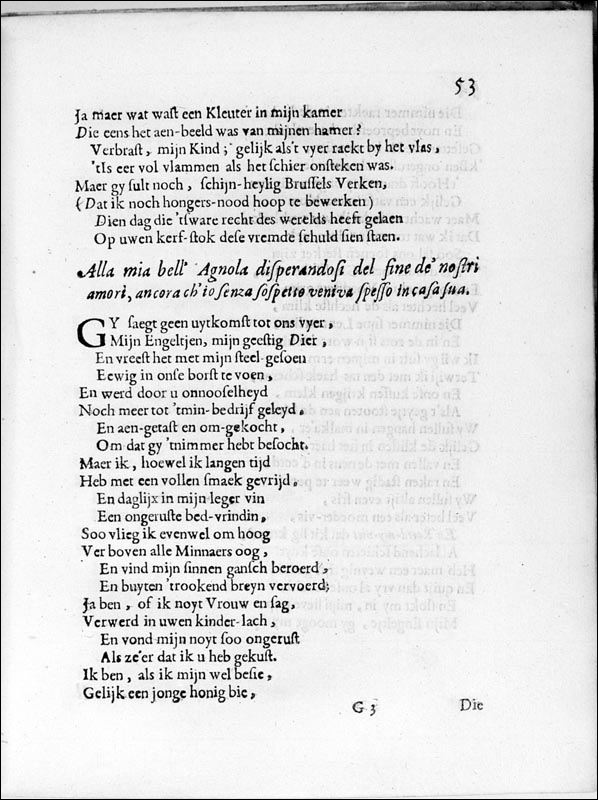 53
Ja maer wat wast een Kleuter in mijn kamer
Die eens het aen-beeld was van mijnen hamer?
Verbrast, mijn Kind; gelijk als't vyer raekt by het vlas,
'tIs eer vol vlammen als het schier onsteken was.
Maer gy sult noch, schijn-heylig Brussels Verken,
(Dat ik noch hongers-nood hoop te bewerken)
Dien dag die 'tsware recht des werelds heeft gelaen
Op uwen kerf-stok dese vremde schuld sien staen.
Alla mia bell' Agnola disperandosi del fine de' nostri
amori, ancora ch'io senza sospetto veniva spesso in casa sua.
GY saegt geen uytkomst tot ons vyer,
Mijn Engeltjen, mijn geestig Dier,
En vreest het met mijn steel-gesoen
Eewig in onse borst te voen,
En werd door u onnooselheyd
Noch meer tot 'tmin-bedrijf geleyd,
En aen-getast en om-gekocht,
Om dat gy 'tnimmer hebt besocht.
Maer ik, hoewel ik langen tijd
Heb met een vollen smaek gevrijd,
En daglijx in mijn leger vin
Een ongeruste bed-vrindin,
Soo vlieg ik evenwel om hoog
Ver boven alle Minnaers oog,
En vind mijn sinnen gansch beroerd,
En buyten 'trookend breyn vervoerd;
Ja ben, of ik noyt Vrouw en sag,
Verwerd in uwen kinder-lach,
En vond mijn noyt soo ongerust
Als ze'er dat ik u heb gekust.
Ik ben, als ik mijn wel besie,
Gelijk een jonge honig bie,
G 3
Die